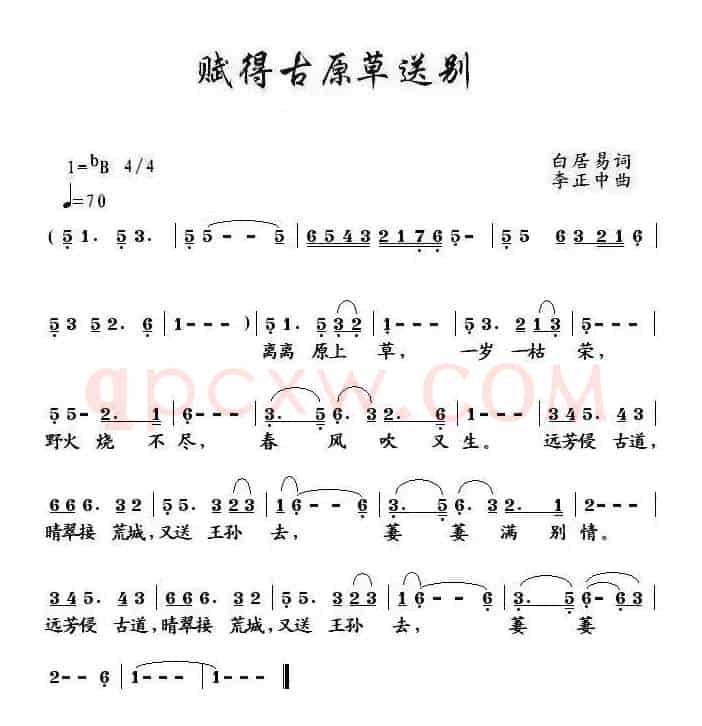 赋得古原草送别
1=ᵇB 4/4
白居易词
♩=70
李正中曲
( 5 1. 5 3. | 5 5 - - 5 | 6 5 4 3 2 1 7 6 5 - | 5 5 6 3 2 1 6 |
5 3 5 2. 6 | 1 - - - ) | 5 1. 5 3 2 | 5 - - - | 5 3. 2 1 3 | 5 - - - |
离离 原上 草, 一岁 一枯 荣,
qpcxw.COM
5 5 - 2. 1 | 6 - - - | 3. 5 6. 3 | 2. 6 1 - | 3 4 5. 4 3 |
野火 烧 不 尽, 春 风 吹 又 生。 远芳侵 古道,
6 6 6. 3 2 | 5 5. 3 2 3 | 1 6 - - 6 | 3. 5 6 6 3 2. 1 | 2 - - - |
晴翠接 荒城,又送 王孙 去, 萋 萋 满 别 情。
3 4 5. 4 3 | 6 6 6. 3 2 | 5 5. 3 2 3 | 1 6 - - 6 | 3. 5 6 - 6 3 |
远芳侵 古道,晴翠接 荒城,又送 王孙 去, 萋 萋
2 - - 6 | 1 - - - | 1 - - - ‖